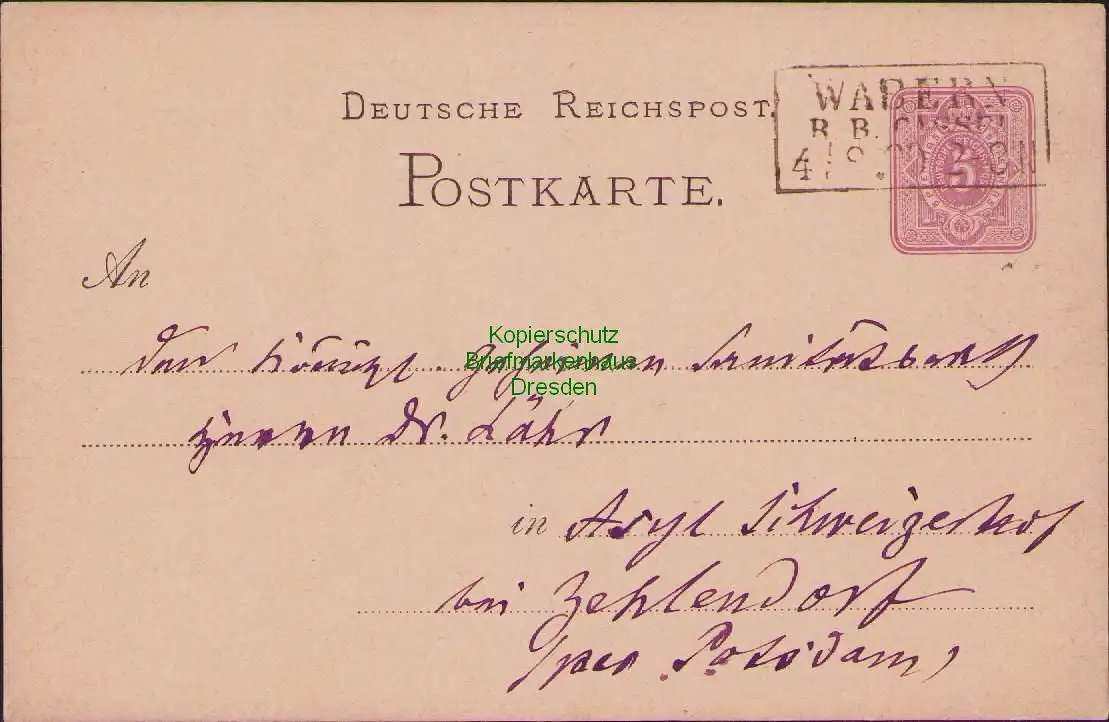 DEUTSCHE REICHSPOST.
POSTKARTE.
WABERN
R. B. CASSEL
5
An
Kopierschutz
Briefmarkenhaus
Dresden
den Königl. Geheimen Sanitätsrath
Herrn Dr. Lähr
in Asyl Schweizerhof
bei Zehlendorf
(per Potsdam)